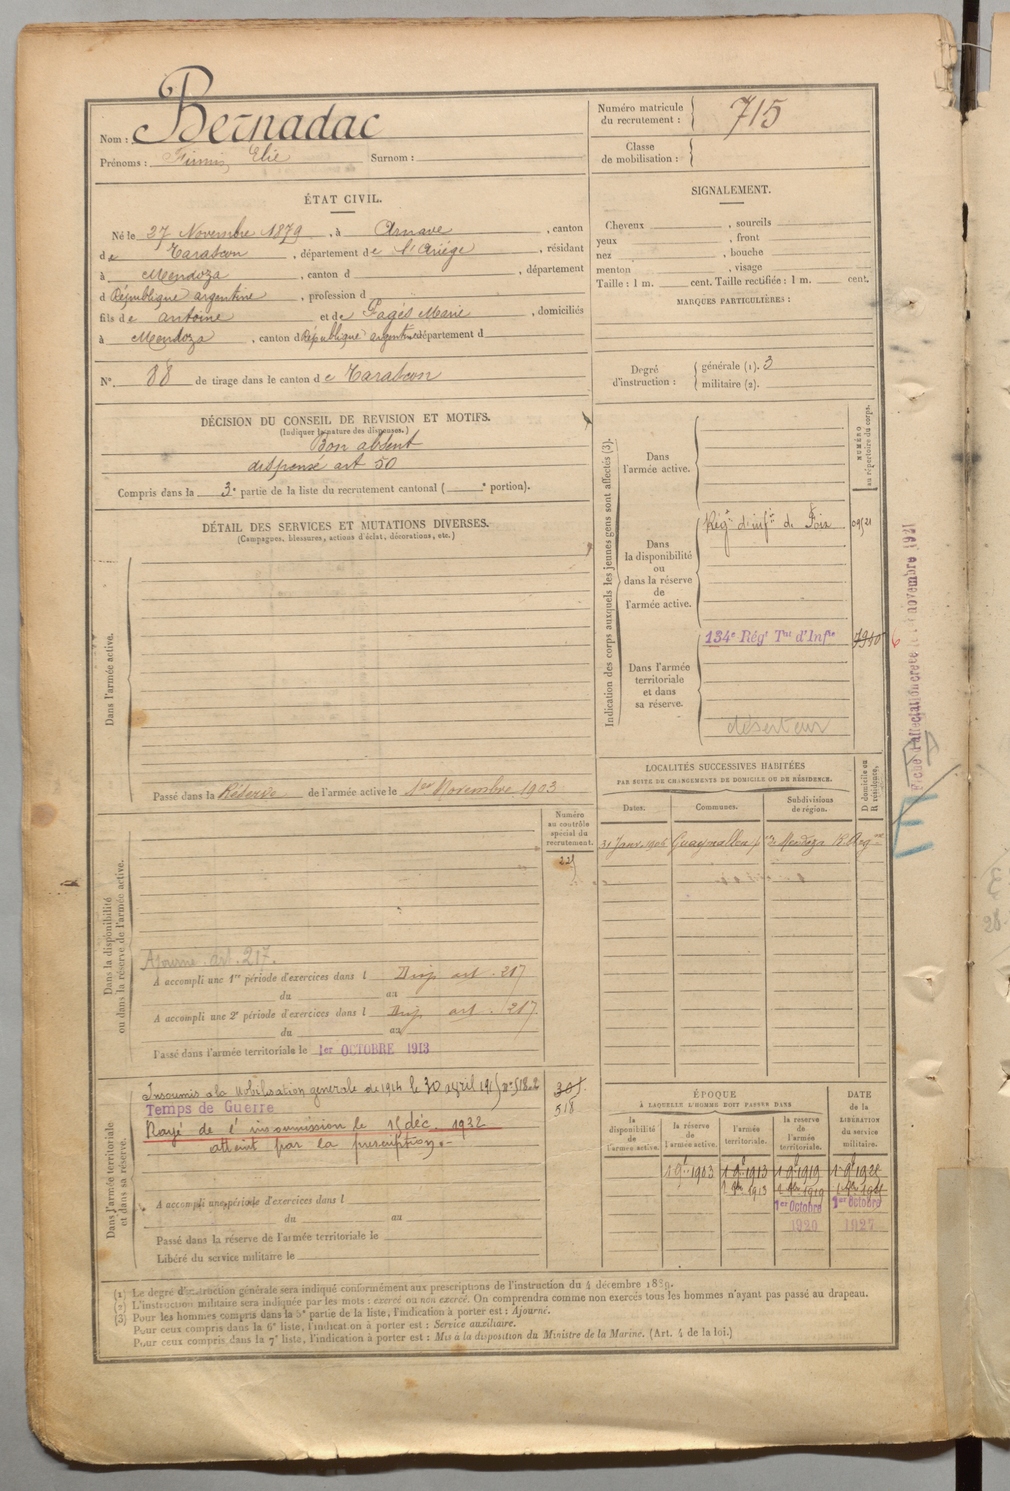 Nom : Bernadac
Prénoms : Firmin Elie Surnom :
Numéro matricule du recrutement : 715
Classe de mobilisation :
ÉTAT CIVIL.
Né le 27 Novembre 1879, à Arnave, canton
de Tarascon, département de l'Ariège, résidant
à Mendoza, canton d , département
d République argentine, profession d
fils de Antoine et de Pagès Marie, domiciliés
à Mendoza, canton d République argentine département d
N° 88 de tirage dans le canton de Tarascon
SIGNALEMENT.
Cheveux , sourcils
yeux , front
nez , bouche
menton , visage
Taille : 1 m. cent. Taille rectifiée : 1 m. cent.
MARQUES PARTICULIÈRES :
Degré d'instruction : générale (1). 3
militaire (2).
DÉCISION DU CONSEIL DE REVISION ET MOTIFS.
(Indiquer la nature des dispenses.)
Bon absent
dispensé art 50
Compris dans la 3e partie de la liste du recrutement cantonal ( e portion).
DÉTAIL DES SERVICES ET MUTATIONS DIVERSES.
(Campagnes, blessures, actions d'éclat, décorations, etc.)
Dans l'armée active.
Passé dans la Réserve de l'armée active le 1er Novembre 1903
Indication des corps auxquels les jeunes gens sont affectés (3).
NUMÉRO au répertoire du corps.
Dans l'armée active.
Dans la disponibilité ou dans la réserve de l'armée active.
Régt d'inftie de Foix
Dans l'armée territoriale et dans sa réserve.
134e Régt Tal d'Infie 7940
déserteur
Fiche d'affectation novembre 1921
LOCALITÉS SUCCESSIVES HABITÉES
PAR SUITE DE CHANGEMENTS DE DOMICILE OU DE RÉSIDENCE.
Dates. Communes. Subdivisions de région. D domicile ou R résidence.
31 Janv. 1906 Mendoza R. Argne
Numéro au contrôle spécial du recrutement.
Dans la disponibilité ou dans la réserve de l'armée active.
Ajourné art. 217.
A accompli une 1re période d'exercices dans l Disp art. 217
du au
A accompli une 2e période d'exercices dans l Disp art. 217
du au
Passé dans l'armée territoriale le 1er OCTOBRE 1913
Dans l'armée territoriale et dans sa réserve.
Insoumis à la Mobilisation générale de 1914 le 30 avril 1915
305
518
Temps de Guerre
Rayé de l'insoumission le 15 déc. 1932
atteint par la prescription.-
A accompli une période d'exercices dans l
du au
Passé dans la réserve de l'armée territoriale le
Libéré du service militaire le
ÉPOQUE
À LAQUELLE L'HOMME DOIT PASSER DANS
la disponibilité de l'armée active. la réserve de l'armée active. l'armée territoriale. la réserve de l'armée territoriale. DATE de la LIBÉRATION du service militaire.
1 9bre 1903 1 9bre 1913 1 9bre 1919
1er Octobre 1920 1er Octobre 1927
(1) Le degré d'instruction générale sera indiqué conformément aux prescriptions de l'instruction du 4 décembre 1889.
(2) L'instruction militaire sera indiquée par les mots : exercé ou non exercé. On comprendra comme non exercés tous les hommes n'ayant pas passé au drapeau.
(3) Pour les hommes compris dans la 5e partie de la liste, l'indication à porter est : Ajourné.
Pour ceux compris dans la 6e liste, l'indication à porter est : Service auxiliaire.
Pour ceux compris dans la 7e liste, l'indication à porter est : Mis à la disposition du Ministre de la Marine. (Art. 4 de la loi.)